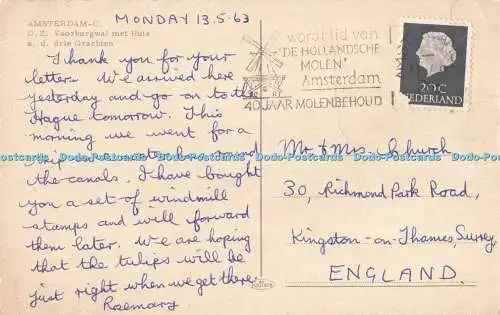 MONDAY 13.5.63
AMSTERDAM-C.
O. Z. Voorburgwal met Huis
a. d. drie Grachten
I thank you for your
letter. We arrived here
yesterday and go on to the
Hague tomorrow. This
morning we went for a
trip round
the canals. I have bought
you a set of windmill
stamps and will forward
them later. We are hoping
that the tulips will be
just right when we get there.
Rosemary
wordt lid van
'DE HOLLANDSCHE
MOLEN'
Amsterdam
40 JAAR MOLENBEHOUD
20 C
NEDERLAND
Mr & Mrs. Church
30, Richmond Park Road,
Kingston-on-Thames, Surrey
ENGLAND.
Dodo-Postcards Dodo-Postcards Dodo-Postcards Dodo-Postcards